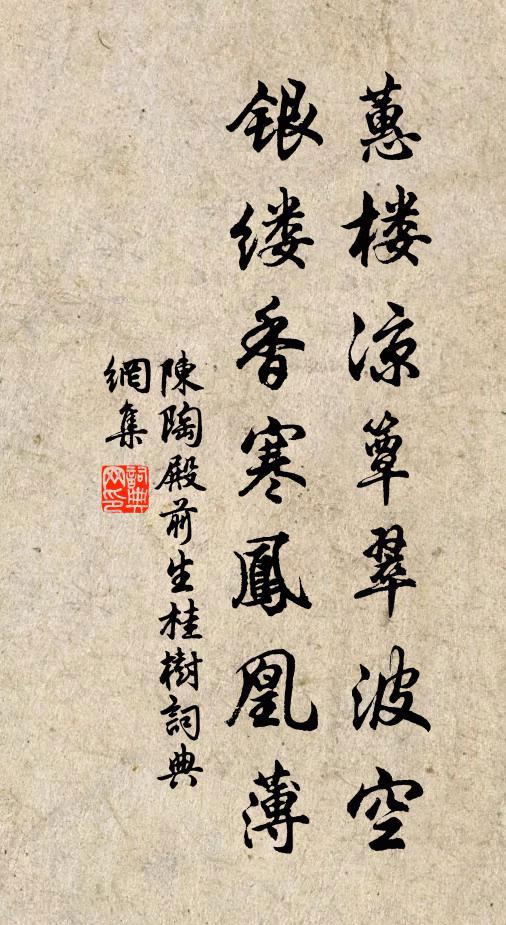 蕙楼凉簟翠波空
银缕香寒鳳凰薄
陳陶殿前生桂樹詞典
網集
詞典
网印